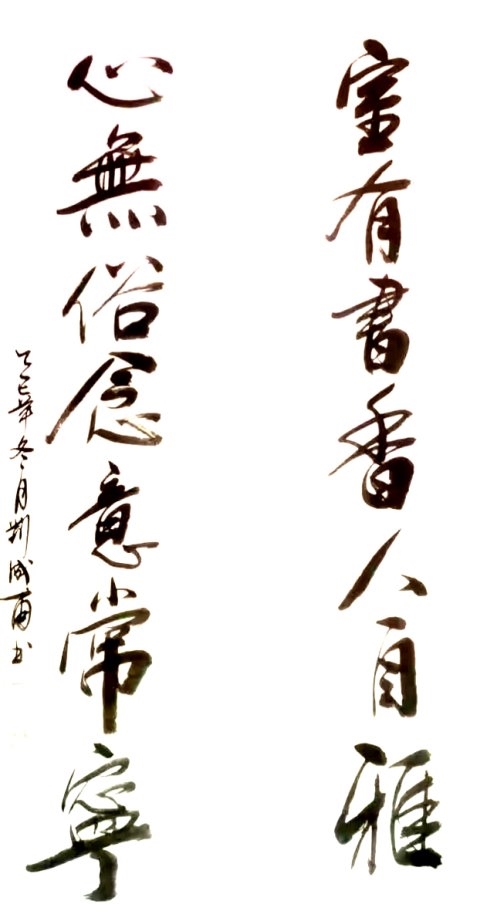 室有書香人自雅
心無俗念意常寧
乙巳年冬月荆成甫书